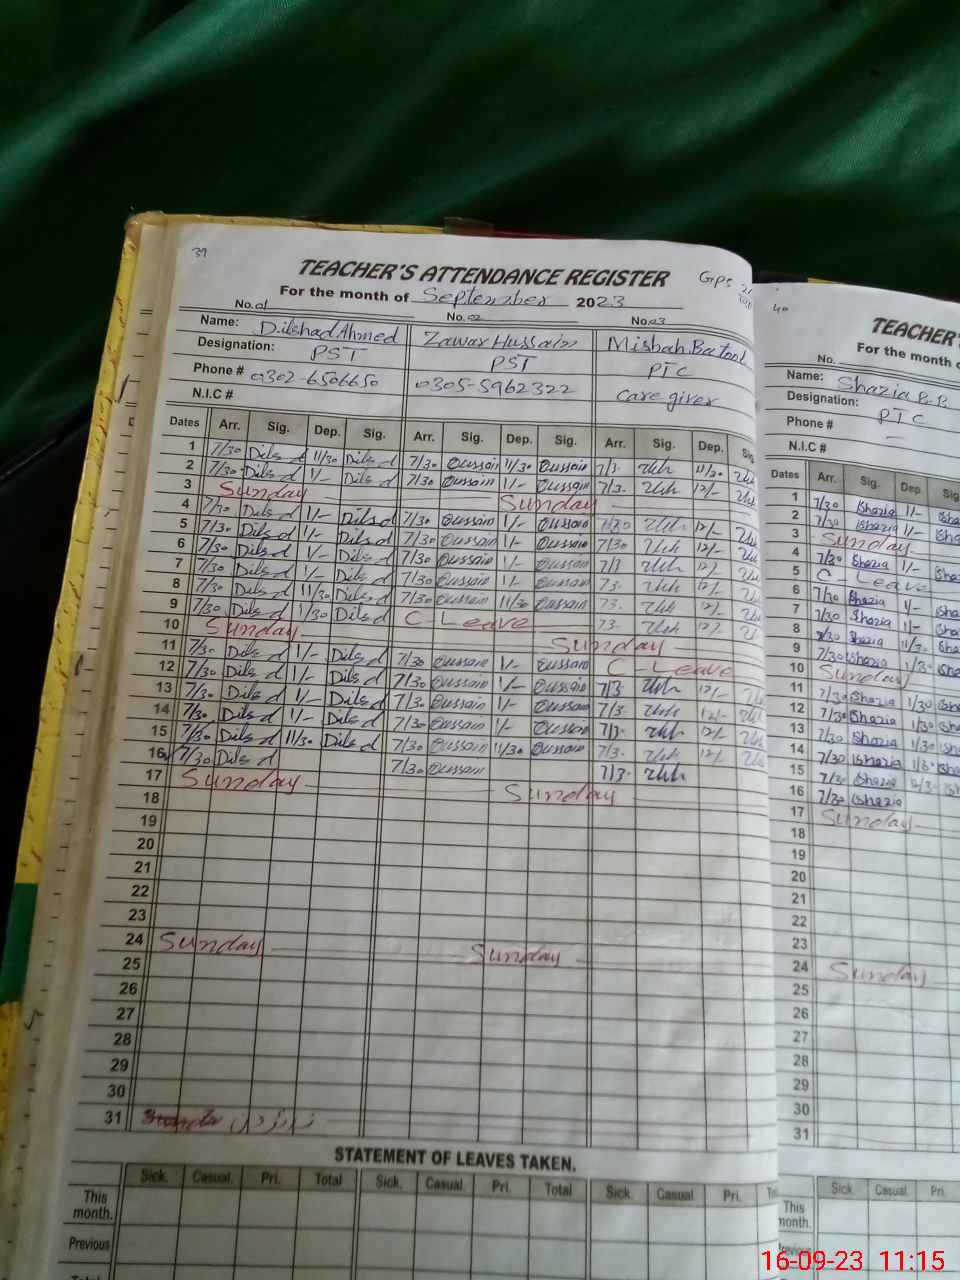 39
TEACHER'S ATTENDANCE REGISTER
GPS
For the month of September 2023
No. 01 No. 02 No. 03
Name: Dilshad Ahmed Zawar Hussain Misbah Batool
Designation: PST PST PTC
Phone # 0302-6506650 0305-5962322 Care giver
N.I.C #
Dates Arr. Sig. Dep. Sig. Arr. Sig. Dep. Sig. Arr. Sig. Dep. Sig.
1 7/30 Dilsd 11/30 Dilsd 7/30 Oussain 11/30 Oussain 7/3. 11/30
2 7/30 Dilsd 1/- Dilsd 7/30 Oussain 1/- Oussain 7/3. 12/-
3 Sunday Sunday
4 7/30 Dilsd 1/- Dilsd 7/30 Oussain 1/- Oussain 7/30 12/-
5 7/30 Dilsd 1/- Dilsd 7/30 Oussain 1/- Oussain 7/30 12/-
6 7/30 Dilsd 1/- Dilsd 7/30 Oussain 1/- Oussain 7/3 12/-
7 7/30 Dilsd 1/- Dilsd 7/30 Oussain 1/- Oussain 73. 12/-
8 7/30 Dilsd 11/30 Dilsd 7/30 Oussain 11/30 Oussain 73. 12/-
9 7/30 Dilsd 1/30 Dilsd C-Leave 73. 12/-
10 Sunday Sunday
11 7/30 Dilsd 1/- Dilsd 7/30 Oussain 1/- Oussain C Leave
12 7/30 Dilsd 1/- Dilsd 7/30 Oussain 1/- Oussain 7/3. 12/-
13 7/30 Dilsd 1/- Dilsd 7/30 Oussain 1/- Oussain 7/3. 12/-
14 7/30 Dilsd 1/- Dilsd 7/30 Oussain 1/- Oussain 7/3. 12/-
15 7/30 Dilsd 11/30 Dilsd 7/30 Oussain 11/30 Oussain 7/3. 12/-
16 7/30 Dilsd 7/30 Oussain 7/3.
17 Sunday Sunday
18
19
20
21
22
23
24 Sunday Sunday
25
26
27
28
29
30
31
STATEMENT OF LEAVES TAKEN.
Sick. Casual. Pri. Total Sick. Casual. Pri. Total Sick. Casual. Pri.
This month.
Previous
Total
40
TEACHER'S
For the month
No.
Name: Shazia B.B.
Designation: PTC
Phone # -
N.I.C #
Dates Arr. Sig. Dep. Sig.
1 7/30 Shazia 1/-
2 7/30 Shazia 1/-
3 Sunday
4 7/30 Shazia 1/-
5 C-Leave
6 7/30 Shazia 1/-
7 7/30 Shazia 1/-
8 7/30 Shazia 11/30
9 7/30 Shazia 1/30
10 Sunday
11 7/30 Shazia 1/30
12 7/30 Shazia 1/30
13 7/30 Shazia 1/30
14 7/30 Shazia 1/30
15 7/30 Shazia
16 7/30 Shazia
17 Sunday
18
19
20
21
22
23
24 Sunday
25
26
27
28
29
30
31
Sick. Casual. Pri.
This month.
Previous
16-09-23 11:15